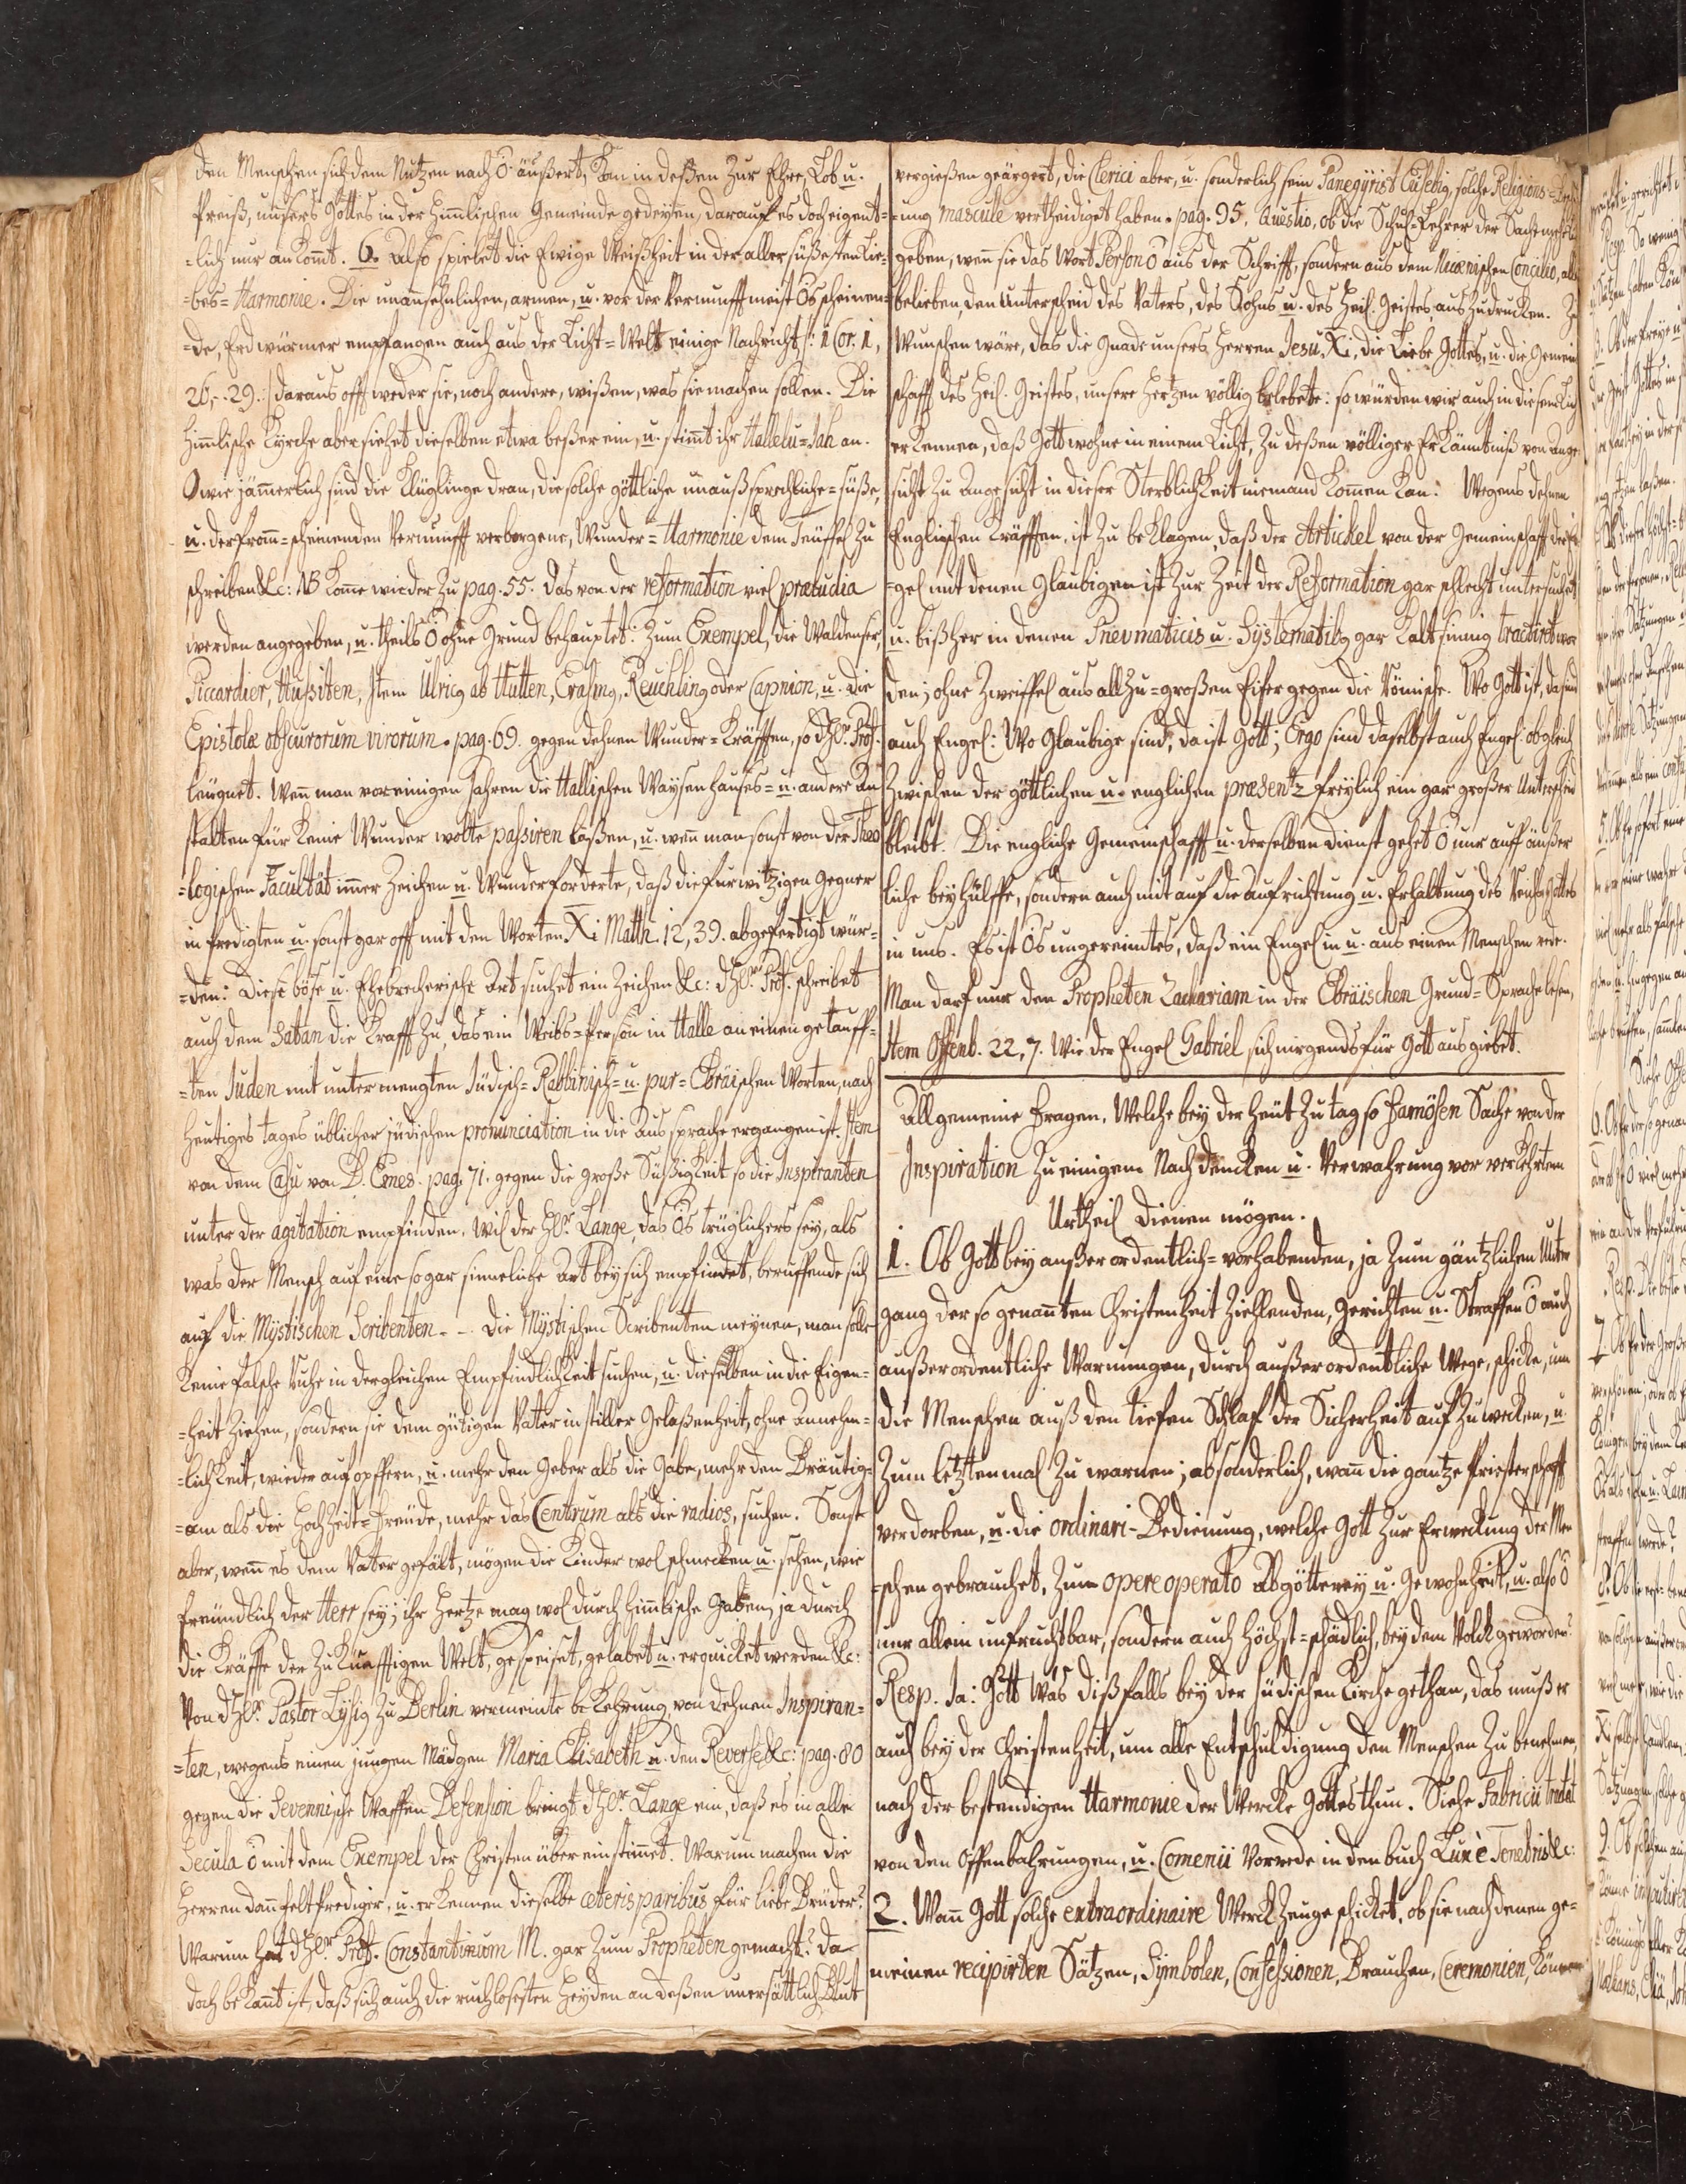 den Menschen sich dem Nutzen nach O äußert, kan in deßen zur Ehre, Lob u.
Preiß, unsers Gottes in der himlischen Gemeinde gedeyen, darauf es doch eigent-
=lich nur ankomt. 6. Also spielet die Ewige Weißheit in der aller süßesten Lie-
=bes=Harmonie. Die unansehnlichen, armen, u. vor der Vernunfft meist Os scheinen-
=de, Erdwürmer empfangen auch aus der Licht=Welt einige Nachricht /: 1 Cor. 1,
26,-29. :/ daraus offt weder sie, noch andere, wißen, was sie machen sollen. Die
himlische Kyrche aber siehet dieselben etwa beßer ein, u. stimt ihr Hallelu=Jah an.
O wie jämmerlich sind die Klüglinge dran, die solche göttliche unaußsprechliche=süße,
u. der from=scheinenden Vernunfft verborgene, Wunder=Harmonie dem Teüffel zu
schreiben &c: NB Kome wieder zu pag. 55. das von der reformation viel præludia
werden angegeben, u. theils O ohne Grund behauptet: Zum Exempel, die Waldenser,
Piccardier, Hussiten, Item Ulricg ab Hutten, Erasmg, Reuchling oder Capnion, u. die
Epistolæ obscurorum virorum. pag. 69. gegen dehnen Wunder=Kräfften, so d Hr. Prof.
leugnet. Wen man vor einigen Jahren die Hallischen Waysenhauses= u. andere An
stalten für keine Wunder wolte passiren laßen, u. wen man sonst von der Theo
=logischen Facultät immer Zeichen u. Wunder forderte, daß die fürwitzigen Gegner
in Predigten u. sonst gar offt mit den Worten Xi Matth. 12, 39. abgefertigt wür-
=den: Diese böse u. Ehebrecherische Art suchet ein Zeichen &c: d Hr. Prof. schreibet
auch dem Satan die Krafft zu, das ein Weibs=Person in Halle an einen getauff-
=ten Juden mit unter mengten Jüdisch=Rabbinisch= u. pur=Ebräischen Worten, nach
heutiges tages üblicher jüdischen pronunciation in die Aussprache ergangen ist. Item
von dem Casu von D. Emes. pag. 71. gegen die große Süßigkeit so die Inspiranten
unter der agitation empfinden. Wil der Hr. Lange, das Os trüglichers sey, als
was der Mensch auf eine so gar sinneliche Art bey sich empfindet, beruffende sich
auf die Mystischen Scribenten. - - Die Mystischen Scribenten meynen, man solle
Keine falsche Ruhe in dergleichen Empfindlichkeit suchen, u. dieselben in die Eigen-
=heit ziehen, sondern sie dem gütigen Vatter in stiller Gelaßenheit, ohne Annehm-
=lichkeit, wieder aufopffern, u. mehr den Geber als die Gabe, mehr den Bräutig-
=am als die Hochzeit=Freude, mehr das Centrum als die radios, suchen. Sonst
aber, wen es dem Vatter gefält, mögen die Kinder wol schmecken u. sehen, wie
freündlich der Herr sey; ihr Hertze mag wol durch himlische Gaben, ja durch
die Kräffte der zukünfftigen Welt, gespeiset, gelabet u. erquicket werden &c:
Von d Hr. Pastor Lysig zu Berlin vermeinte bekehrung, von dehnen Inspiran=
=ten, wegens einen jungen Mädgen Maria Elisabeth u. den Reverse &c: pag. 80
gegen die Sevennische Waffen Defension bringt d Hr. Lange ein, daß es in alle
Secula O mit dem Exempel der Christen über einstimmet. Warum machen die
Herren dann feltprediger, u. erkennen dieselbe cæteris paribus für liebe Brüder?
Warum hat d Hr. Prof. Constantinum M. gar zum Propheten gemacht? Da
doch bekant ist, daß sich auch die ruchlosesten Heyden an deßen unersättlich Blut
vergießen geärgert, die Clerici aber, u. sonderlich sein Panegyrist Eusebig, solche Religions=
=ung mascule vertheidiget haben. pag. 95. Quæstio, ob die Schul=Lehrer der Sache
geben, wen sie das Wort Person O aus der Schrifft, sondern aus dem Nicænischen Concilio, als
belieben, den Unterscheid des Vaters, des Sohns u. des Heil. Geistes, auszudrucken. Zu
Wunschen wäre, das die Gnade unsers Herren Jesu Xi, die Liebe Gottes, u. die Gemein
schafft des Heil. Geistes, unsere Hertzen völlig belebete: so würden wir auch in diesem Licht
erkennen, daß Gott wohne in einem Licht, zu deßen völliger Erkäntniß von Ange-
sicht zu Angesicht in dieser Sterblichkeit niemand kommen kan. Wegens dehnen
Englischen Kräfften, ist zu beklagen, daß der Artickel von der Gemeinschafft der En
=gel mit denen Glaubigen ist zur Zeit der Reformation gar schlecht untersuchet,
u. bißher in denen Pnevmaticis u. Systematibg gar kaltsinnig tractiret wor
den; ohne Zweiffel aus allzu=großen Eifer gegen die Römische. Wo Gott ist, da sind
auch Engel: Wo Glaubige sind, da ist Gott; Ergo sind daselbst auch Engel: obgleich
Zwischen der göttlichen u. englichen præsentz freylich ein gar großer Unterscheid
bleibt. Die engliche Gemeinschafft u. derselben dienst gehet O nur auff äußer
liche beyhülffe, sondern auch mit auf die aufrichtung u. Erhaltung des Reichs Gottes
in uns. Es ist Os ungereimtes, daß ein Engel in u. aus einen Menschen rede.
Man darf nur den Propheten Zachariam in der Ebräischen Grund=Sprache lesen,
Item Offenb. 22, 7. Wie der Engel Gabriel sich nirgends für Gott ausgiebet.
Allgemeine Fragen, Welche bey der heut zu tag so Famösen Sache von der
Inspiration zu einigem Nachdencken u. Verwahrung vor verkehrtem
Urtheil dienen mögen.
1. Ob Gott bey außerordentlich=vorhabenden, ja zum gäntzlichen Unter
gang der so genanten Christenheit ziehlenden, Gerichten u. Straffen O auch
außerordentliche Warnungen, durch außerordentliche Wege, schicke, um
die Menschen auß den tiefen Schlaf der Sicherheit aufzuwecken, u.
Zum letzten mal zu warnen; absonderlich, wan die gantze Priesterschafft
verdorben, u. die ordinari-Bedienung, welche Gott zur Erweckung der Men
=schen gebrauchet, zum opere operato Abgötterey u. Gewohnheit, u. also O
nur allein unfruchtbar, sondern auch höchst=schädlich, bey dem Volck geworden?
Resp. Ja: Gott Was dißfalls bey der jüdischen Kirche gethan, das muß er
auch bey der Christenheit, um alle Entschuldigung den Menschen zu benehmen,
nach der bestendigen Harmonie der Wercke Gottes thun. Siehe Fabricii tractat
von den Offenbahrungen, u. Comenii Vorrede in den buch Lux è Tenebris &c:
2. Wan Gott solche extraordinaire Werckzeuge schicket, ob sie nach denen ge-
meinen recipirten Sätzen, Symbolen, Confessionen, Brauchen, Ceremonien, Können